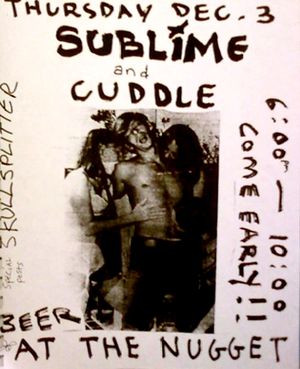 THURSDAY DEC. 3
SUBLIME
and
CUDDLE
6:00pm — 10:00
COME EARLY!!!
SKULLSPLITTER
special
BEER
AT THE NUGGET